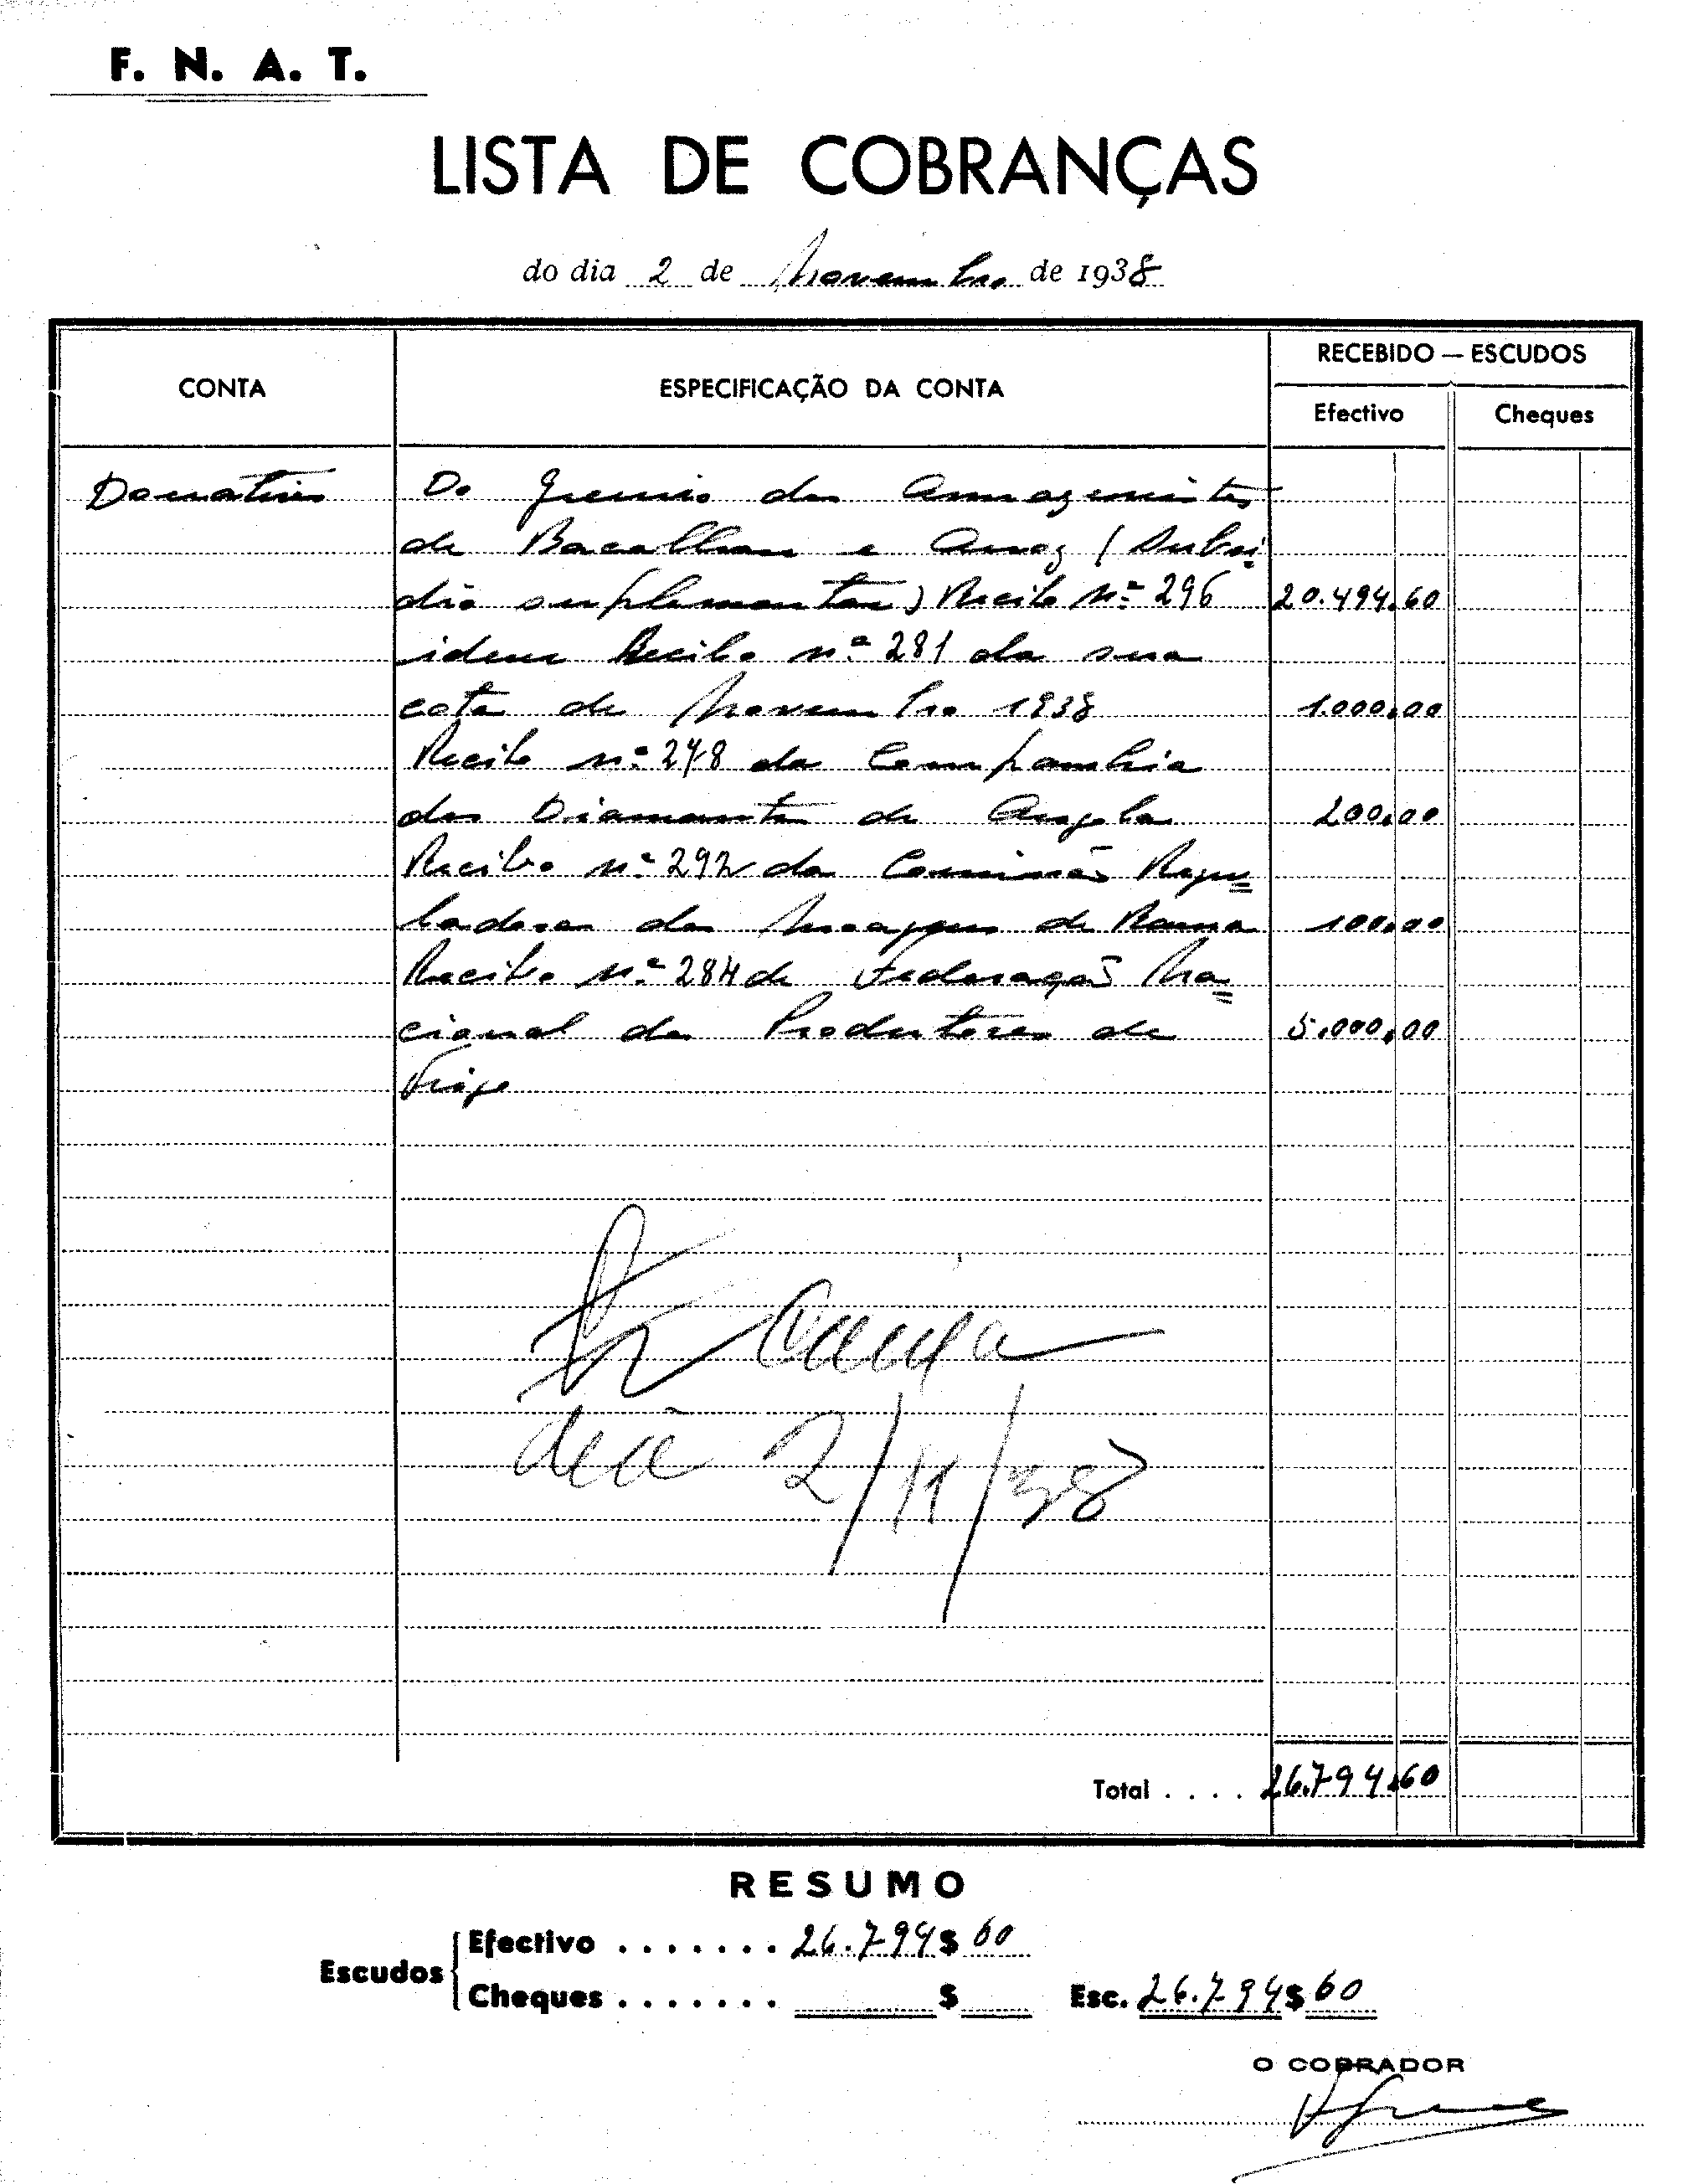 F. N. A. T.
LISTA DE COBRANÇAS
do dia 2 de Novembro de 1938
RECEBIDO — ESCUDOS
CONTA ESPECIFICAÇÃO DA CONTA
Efectivo Cheques
Donativos Do Gremio dos Armazenistas
de Bacalhau e Arroz (Subsi-
dio suplementar) Recibo Nº 296 20.494,60
idem Recibo nº 281 da sua
cota de Novembro 1938 1.000,00
Recibo nº 278 da Companhia
dos Diamantes de Angola 200,00
Recibo nº 292 da Comissão Regu=
ladora das Moagens de Rama 100,00
Recibo Nº 284 de Federação Na=
cional dos Produtores de 5.000,00
Trigo
Caixa
dia 2/11/38
Total . . . . 26.794,60
RESUMO
Efectivo . . . . . . . 26.794$60
Escudos
Cheques . . . . . . . $ Esc. 26.794$60
O COBRADOR